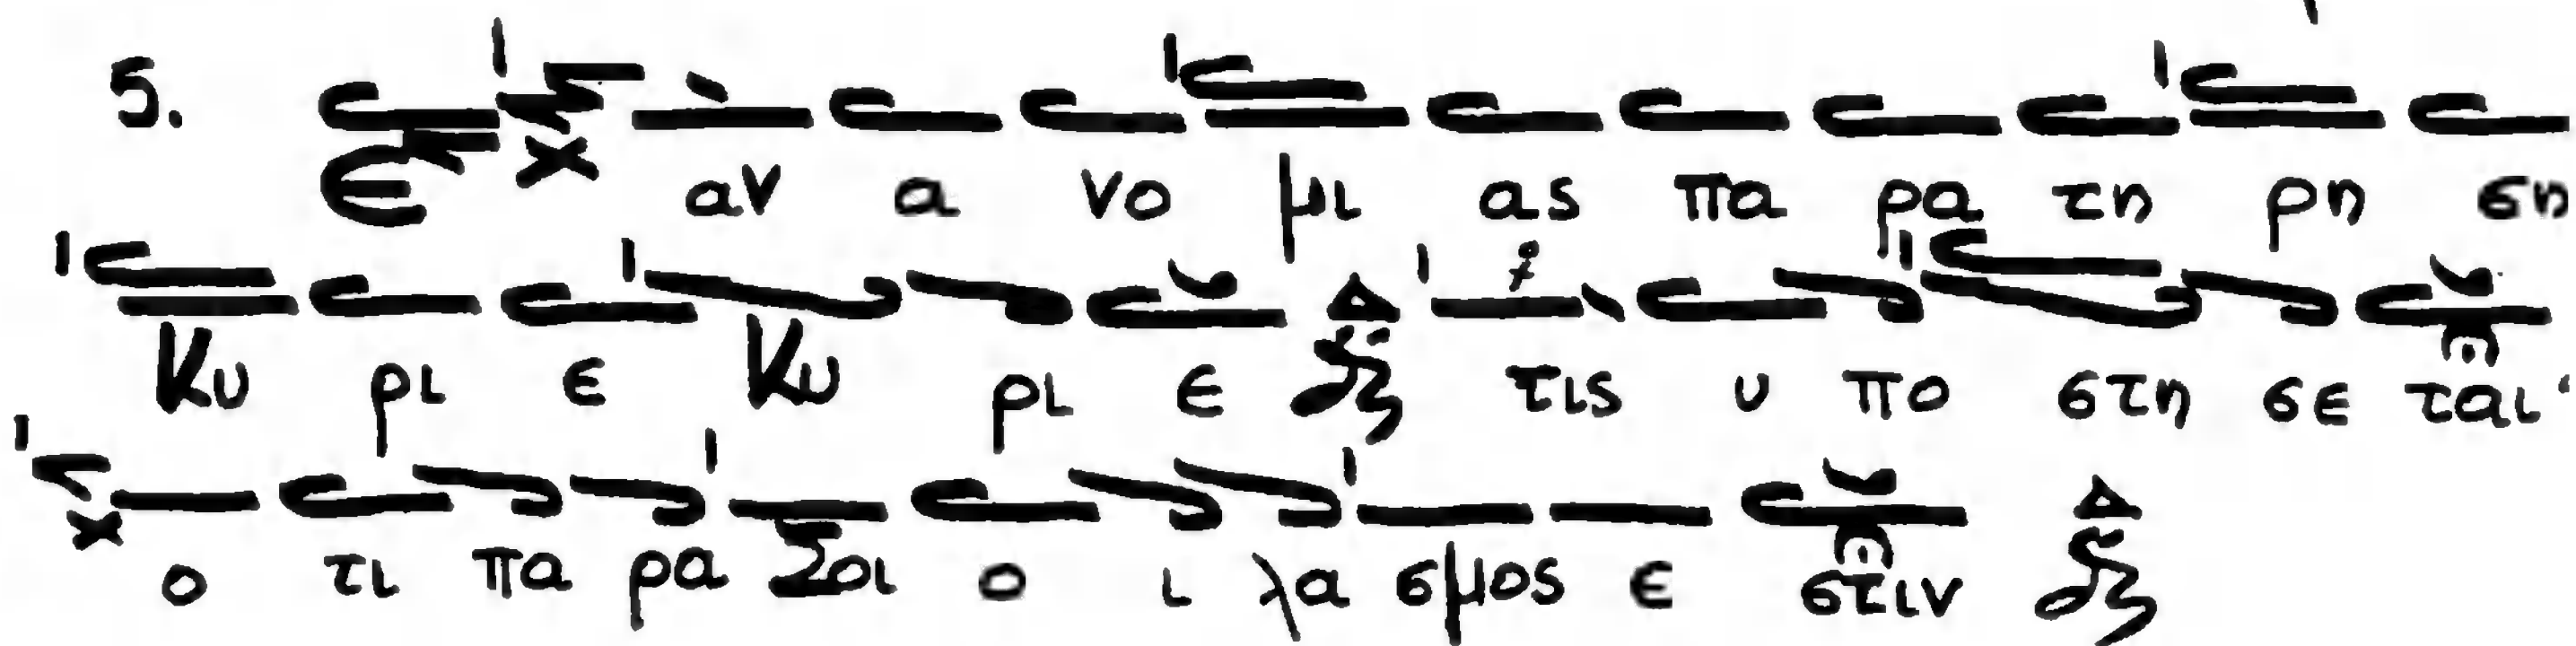 5. Ε αν α νο μι ας πα ρα τη ρη ση
Κυ ρι ε Κυ ρι ε τις υ πο στη σε ται·
ο τι πα ρα Σοι ο ι λα σμος ε στιν